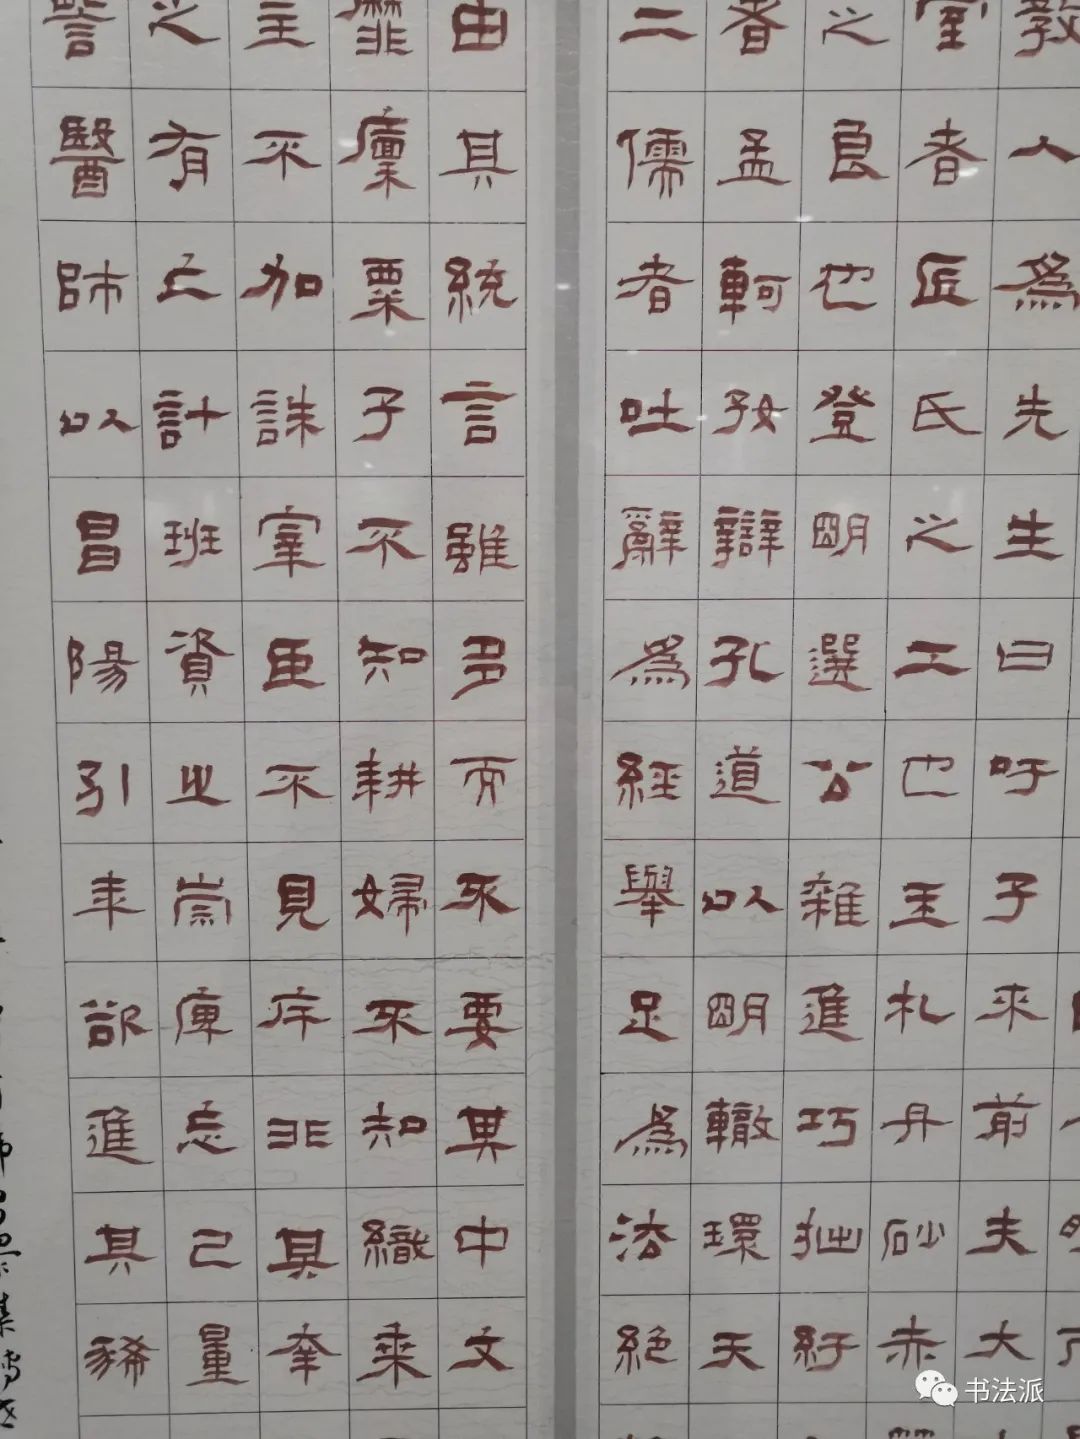 教人為先生曰吁子來前夫大
室者匠氏之工也玉札丹砂赤
之良也登明選公雜進巧拙紆
者孟軻好辯孔道以明轍環天
二儒者吐辭為經舉足為法絕
由其統言雖多而不要其中文
靡廩粟子不知耕婦不知織乘
主不加誅宰臣不見斥非其幸
之有亡計班資之崇庳忘己量
訾醫師以昌陽引年欲進其豨
书法派